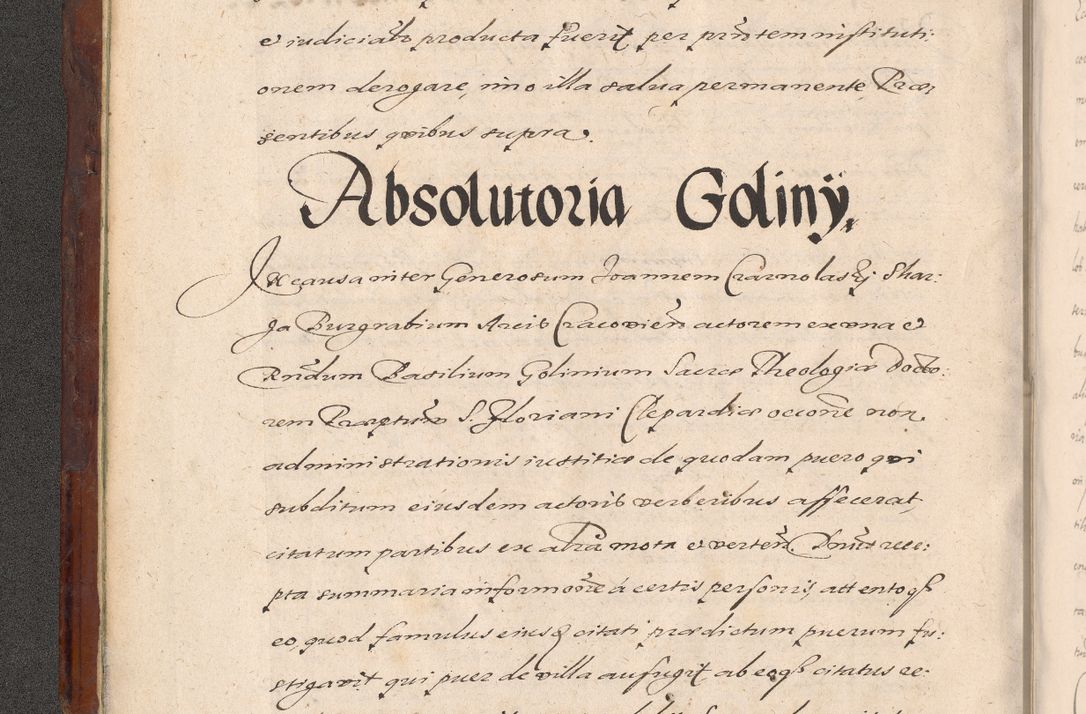 e iudicialr producta fuerit per prñtem instituti:
onem derogare, imo illa salua permanente, Præ,
sentibus quibus supra.
Absolutoria Goliny.
In causa inter Generosum Joannem Czarnolaskij Skar:
ga Burgrabium Arcis Cracovieñ actorem ex vna e
Rndum Basilium Golinium Sacræ Theologiæ Docto:
rem Præptum S. Floriani Clepardiæ occone non
administrationis iustitiæ de quodam puero qui
subditum eiusdem actoris verberibus affecerat,
citatum partibus ex altra mota e verteñ. Dnus rece:
pta summaria informone à certis personis, attento qs
eo, quod famulus eiusd citati prædictum puerum fu:
stigavit qui puer de villa aufugit ab eoqs citatus re: